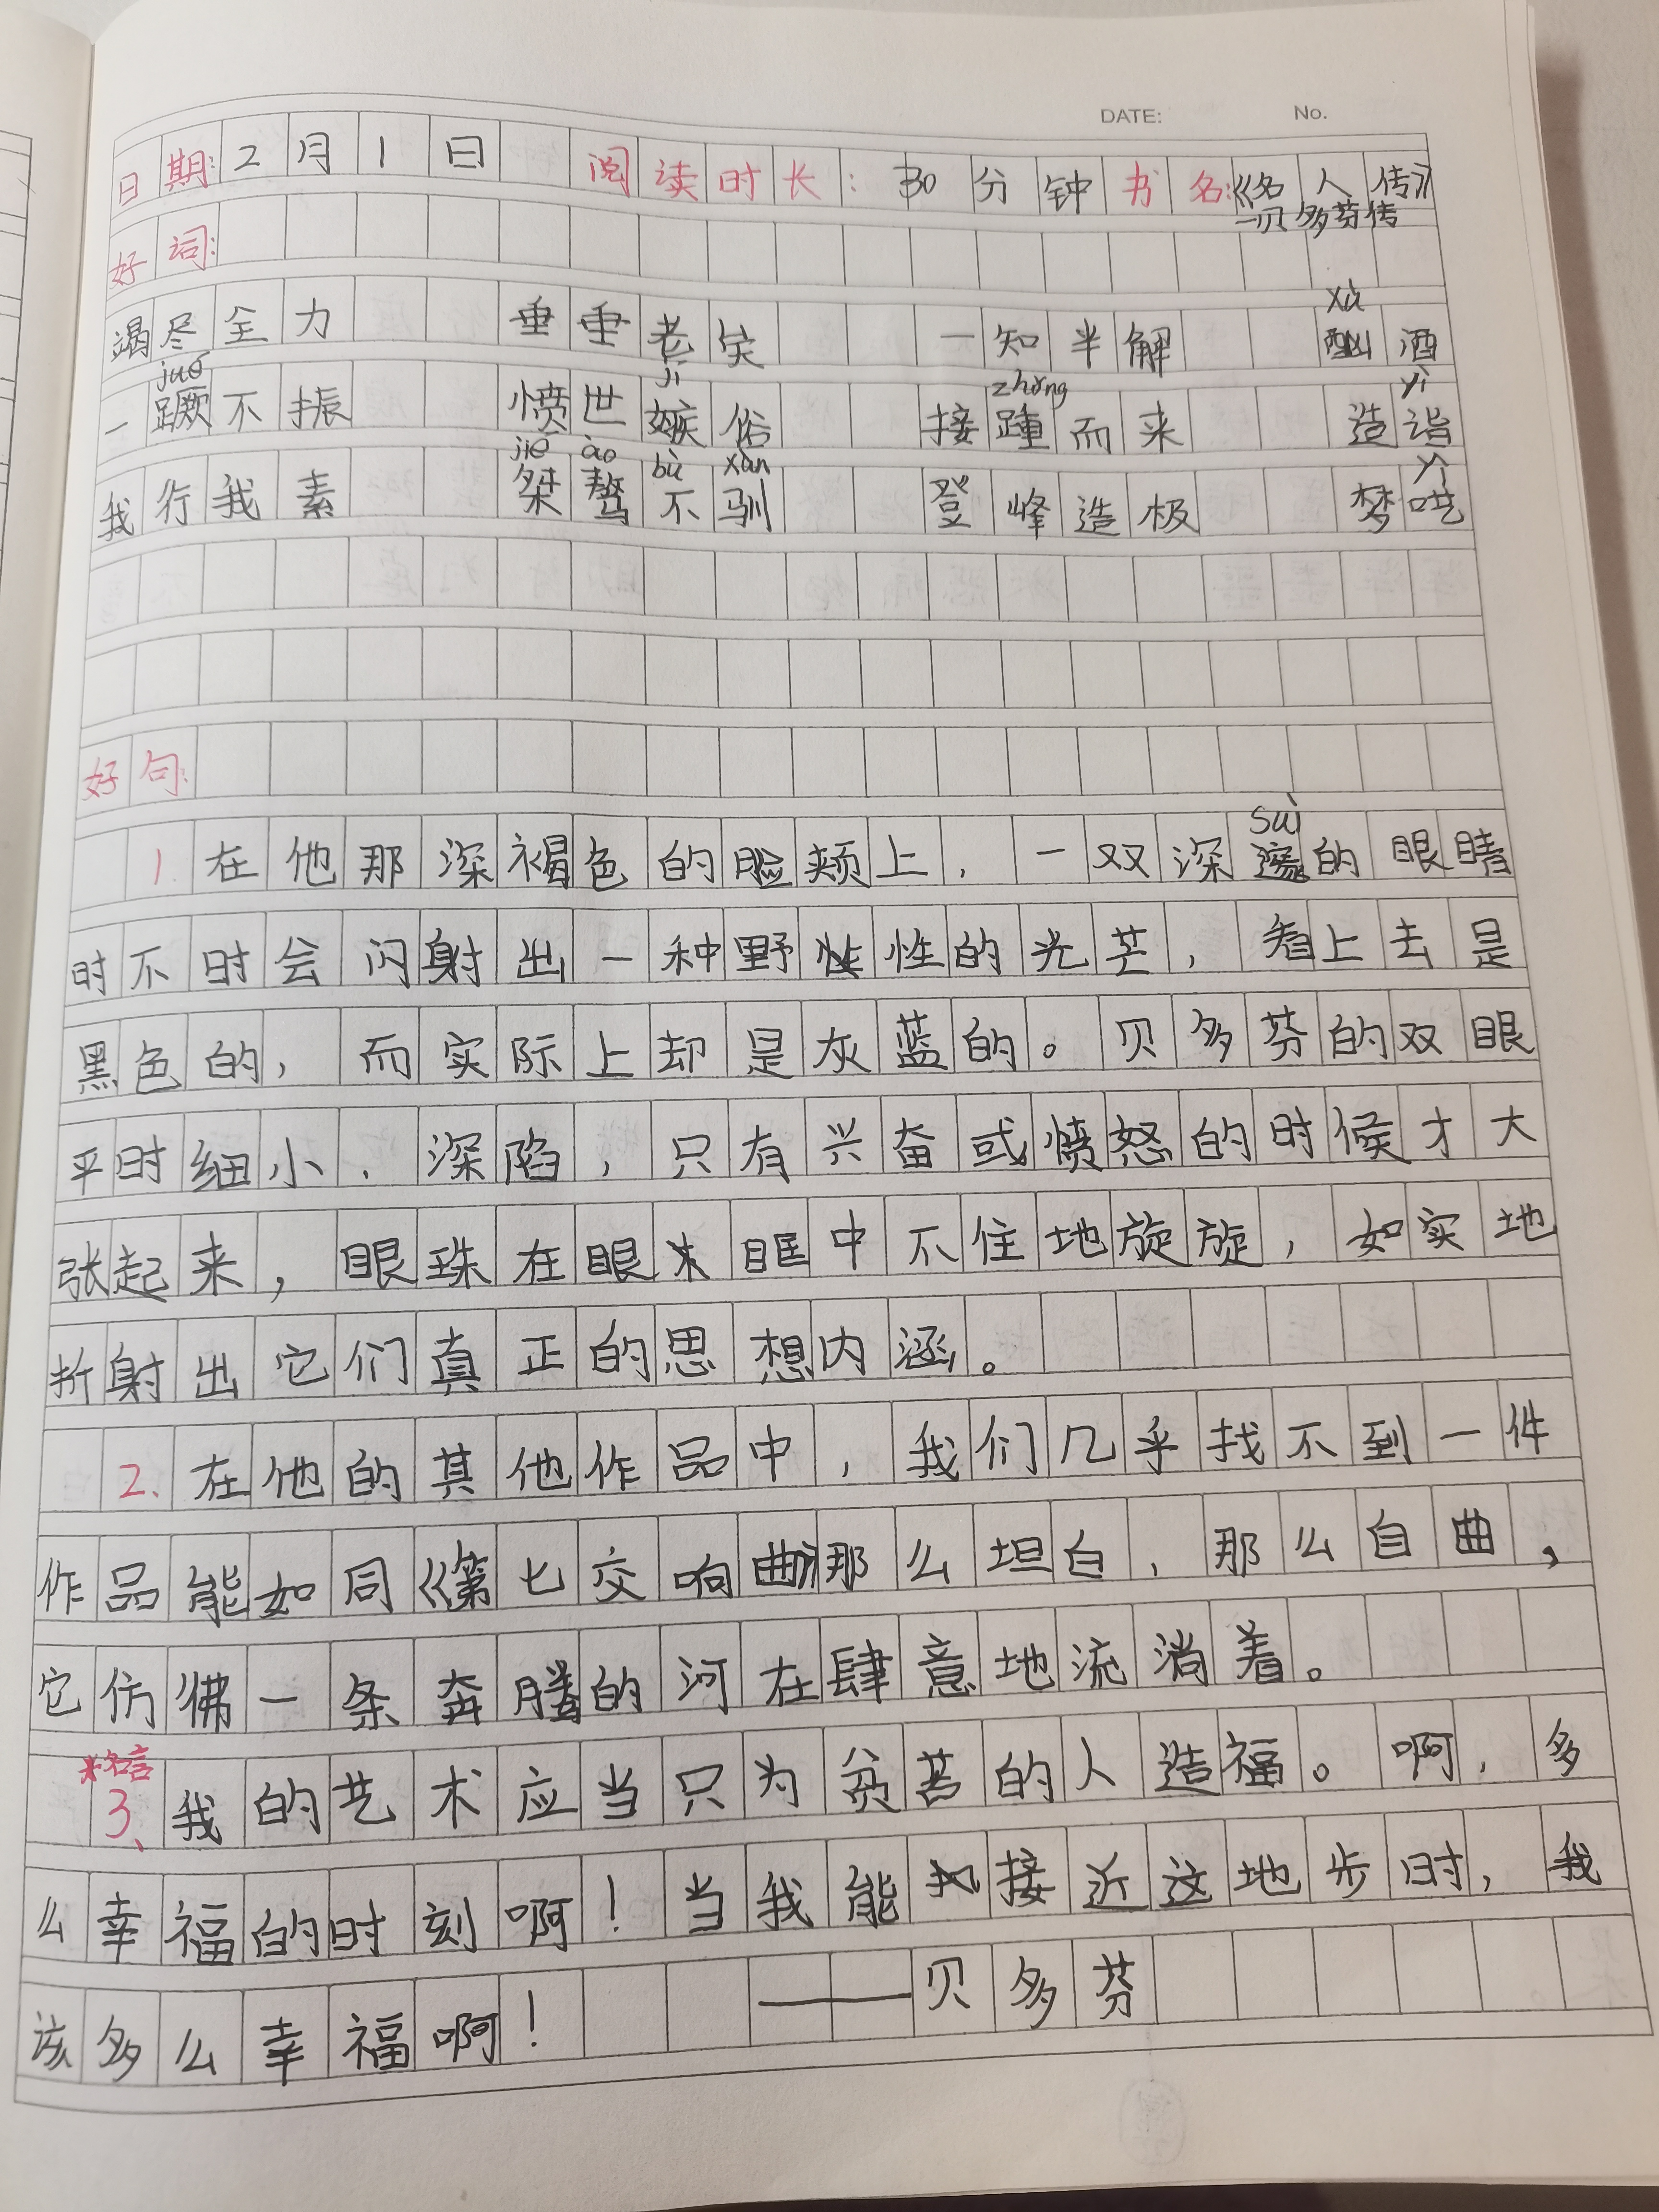 DATE: No.
日期:2月1日 阅读时长:30分钟 书名:《名人传》
—贝多芬传
好词:
竭尽全力 垂垂老矣 一知半解 酗酒
xù
一蹶不振 愤世嫉俗 接踵而来 造诣
jué jí zhǒng yì
我行我素 桀骜不驯 登峰造极 梦呓
jié ào bù xùn yì
好句:
1. 在他那深褐色的脸颊上,一双深邃的眼睛
suì
时不时会闪射出一种野性的光芒,看上去是
黑色的,而实际上却是灰蓝的。贝多芬的双眼
平时细小、深陷,只有兴奋或愤怒的时候才大
张起来,眼珠在眼眶中不住地旋旋,如实地
折射出它们真正的思想内涵。
2、在他的其他作品中,我们几乎找不到一件
作品能如同《第七交响曲》那么坦白,那么自曲,
它仿佛一条奔腾的河在肆意地流淌着。
*名言
3、我的艺术应当只为贫苦的人造福。啊,多
么幸福的时刻啊!当我能接近这地步时,我
该多么幸福啊! ——贝多芬